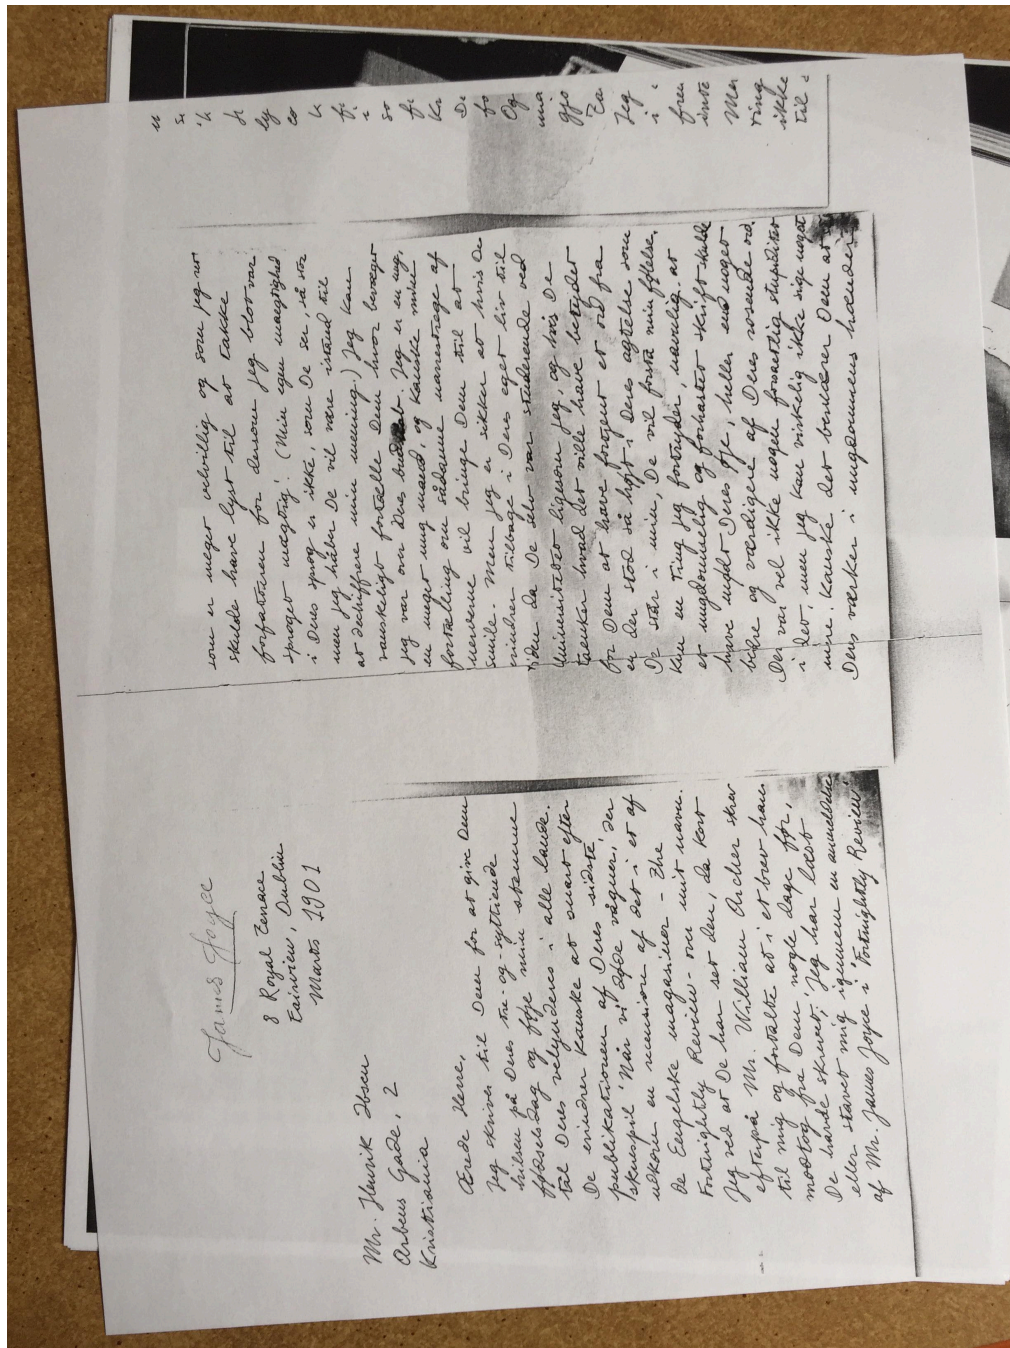 James Joyce
8 Royal Terrace
Fairview, Dublin
Marts 1901
Mr. Henrik Ibsen
Arbens Gade, 2
Kristiania
Ærede Herre,
Jeg skriver til Dem for at give Dem
hilsen på Deres tre-og-syttiende
fødselsdag og føje min stemme
til Deres velynderes i alle lande.
De erindrer kanske at snart efter
publikationen af Deres sidste
skuespil 'Når vi døde vågner,' der
udkom en recension af det i et af
de Engelske magasiner - The
Fortnightly Review - over mit navn.
Jeg ved at De har set den, da kort
efterpå Mr. William Archer skrev
til mig og fortalte at i et brev han
modtog fra Dem nogle dage før,
De havde skrevet, 'Jeg har læst
eller stavet mig igennem en anmeldelse
af Mr. James Joyce i "Fortnightly Review"
som er meget velvillig og som jeg ret
skulde have lyst til at takke
forfatteren for dersom jeg blot var
sproget mægtig'. (Min egen mægtighed
i Deres sprog er ikke, som De ser, så stor
men jeg håber De vil være istand til
at dechiffrere min mening.) Jeg kan
vanskeligt fortælle Dem hvor bevæget
jeg var over Deres budskab. Jeg er en ung,
en meget ung mand, og kanske min
fortælling om sådanne narrestrege af
nerverne vil bringe Dem til at
smile. Men jeg er sikker at hvis De
erindrer tilbage i Deres eget liv til
tiden da De selv var studerende ved
Universitetet ligesom jeg, og hvis De
tænker hvad det ville have betydet
for Dem at have fortjent et ord fra
en der stod så højt i Deres agtelse som
De står i min, De vil forstå min følelse.
Kun en ting jeg fortryder, navnlig, at
et ungdommelig og forhastet skrift skulde
have mødt Deres øje, heller end noget
bedre og værdigere af Deres rosende ord.
Der var vel ikke nogen forsætlig stupiditet
i det, men jeg kan virkelig ikke sige noget
mere. Kanske det besværer Dem at
Deres værker i ungdommens hænder
fi
i
so
fi
De
fo
Og
ma
gjo
Jeg
i
frem
inte
Me
ring
ikke
til